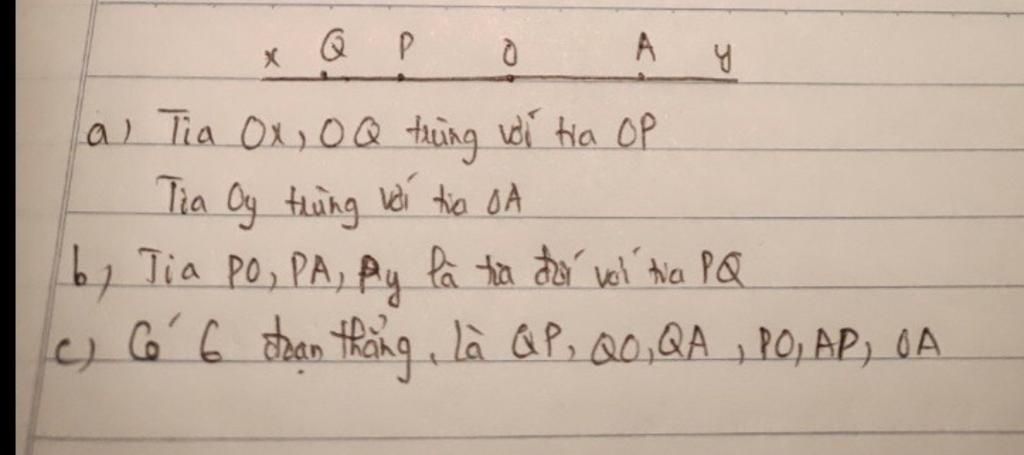 x Q P O A y
a) Tia Ox, OQ trùng với tia OP
Tia Oy trùng với tia OA
b) Tia PO, PA, Py là tia đối với tia PQ
c) Có 6 đoạn thẳng, là QP, QO, QA, PO, AP, OA